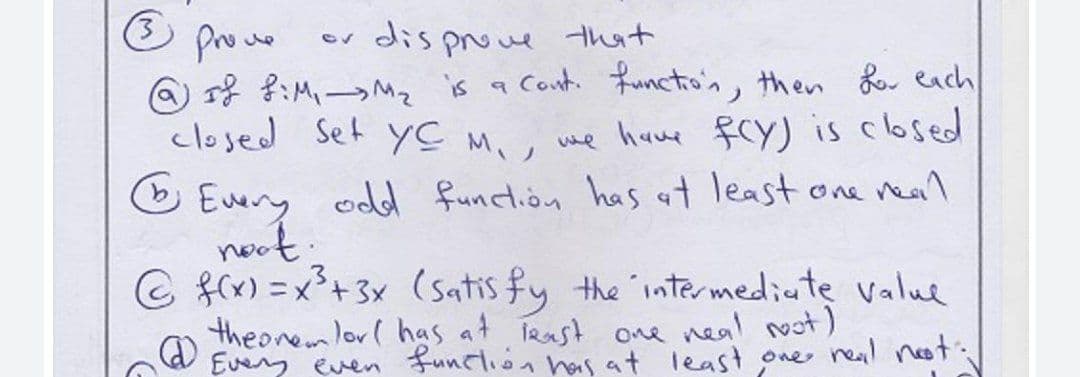 ③ Prove or disprove that
ⓐ If f:M₁→M₂ is a Cont. function, then for each
closed Set Y⊆ M₁, we have f(Y) is closed
ⓑ Every odd function has at least one real
root.
ⓒ f(x) = x³+3x (satisfy the intermediate value
theorem)or( has at least one real root)
ⓓ Every even function has at least one real root.